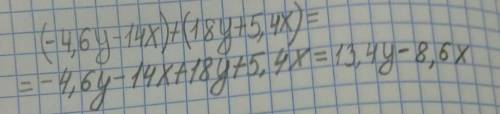 (-4,6y-14x)+(18y+5,4x)=
=-4,6y-14x+18y+5,4x=13,4y-8,6x